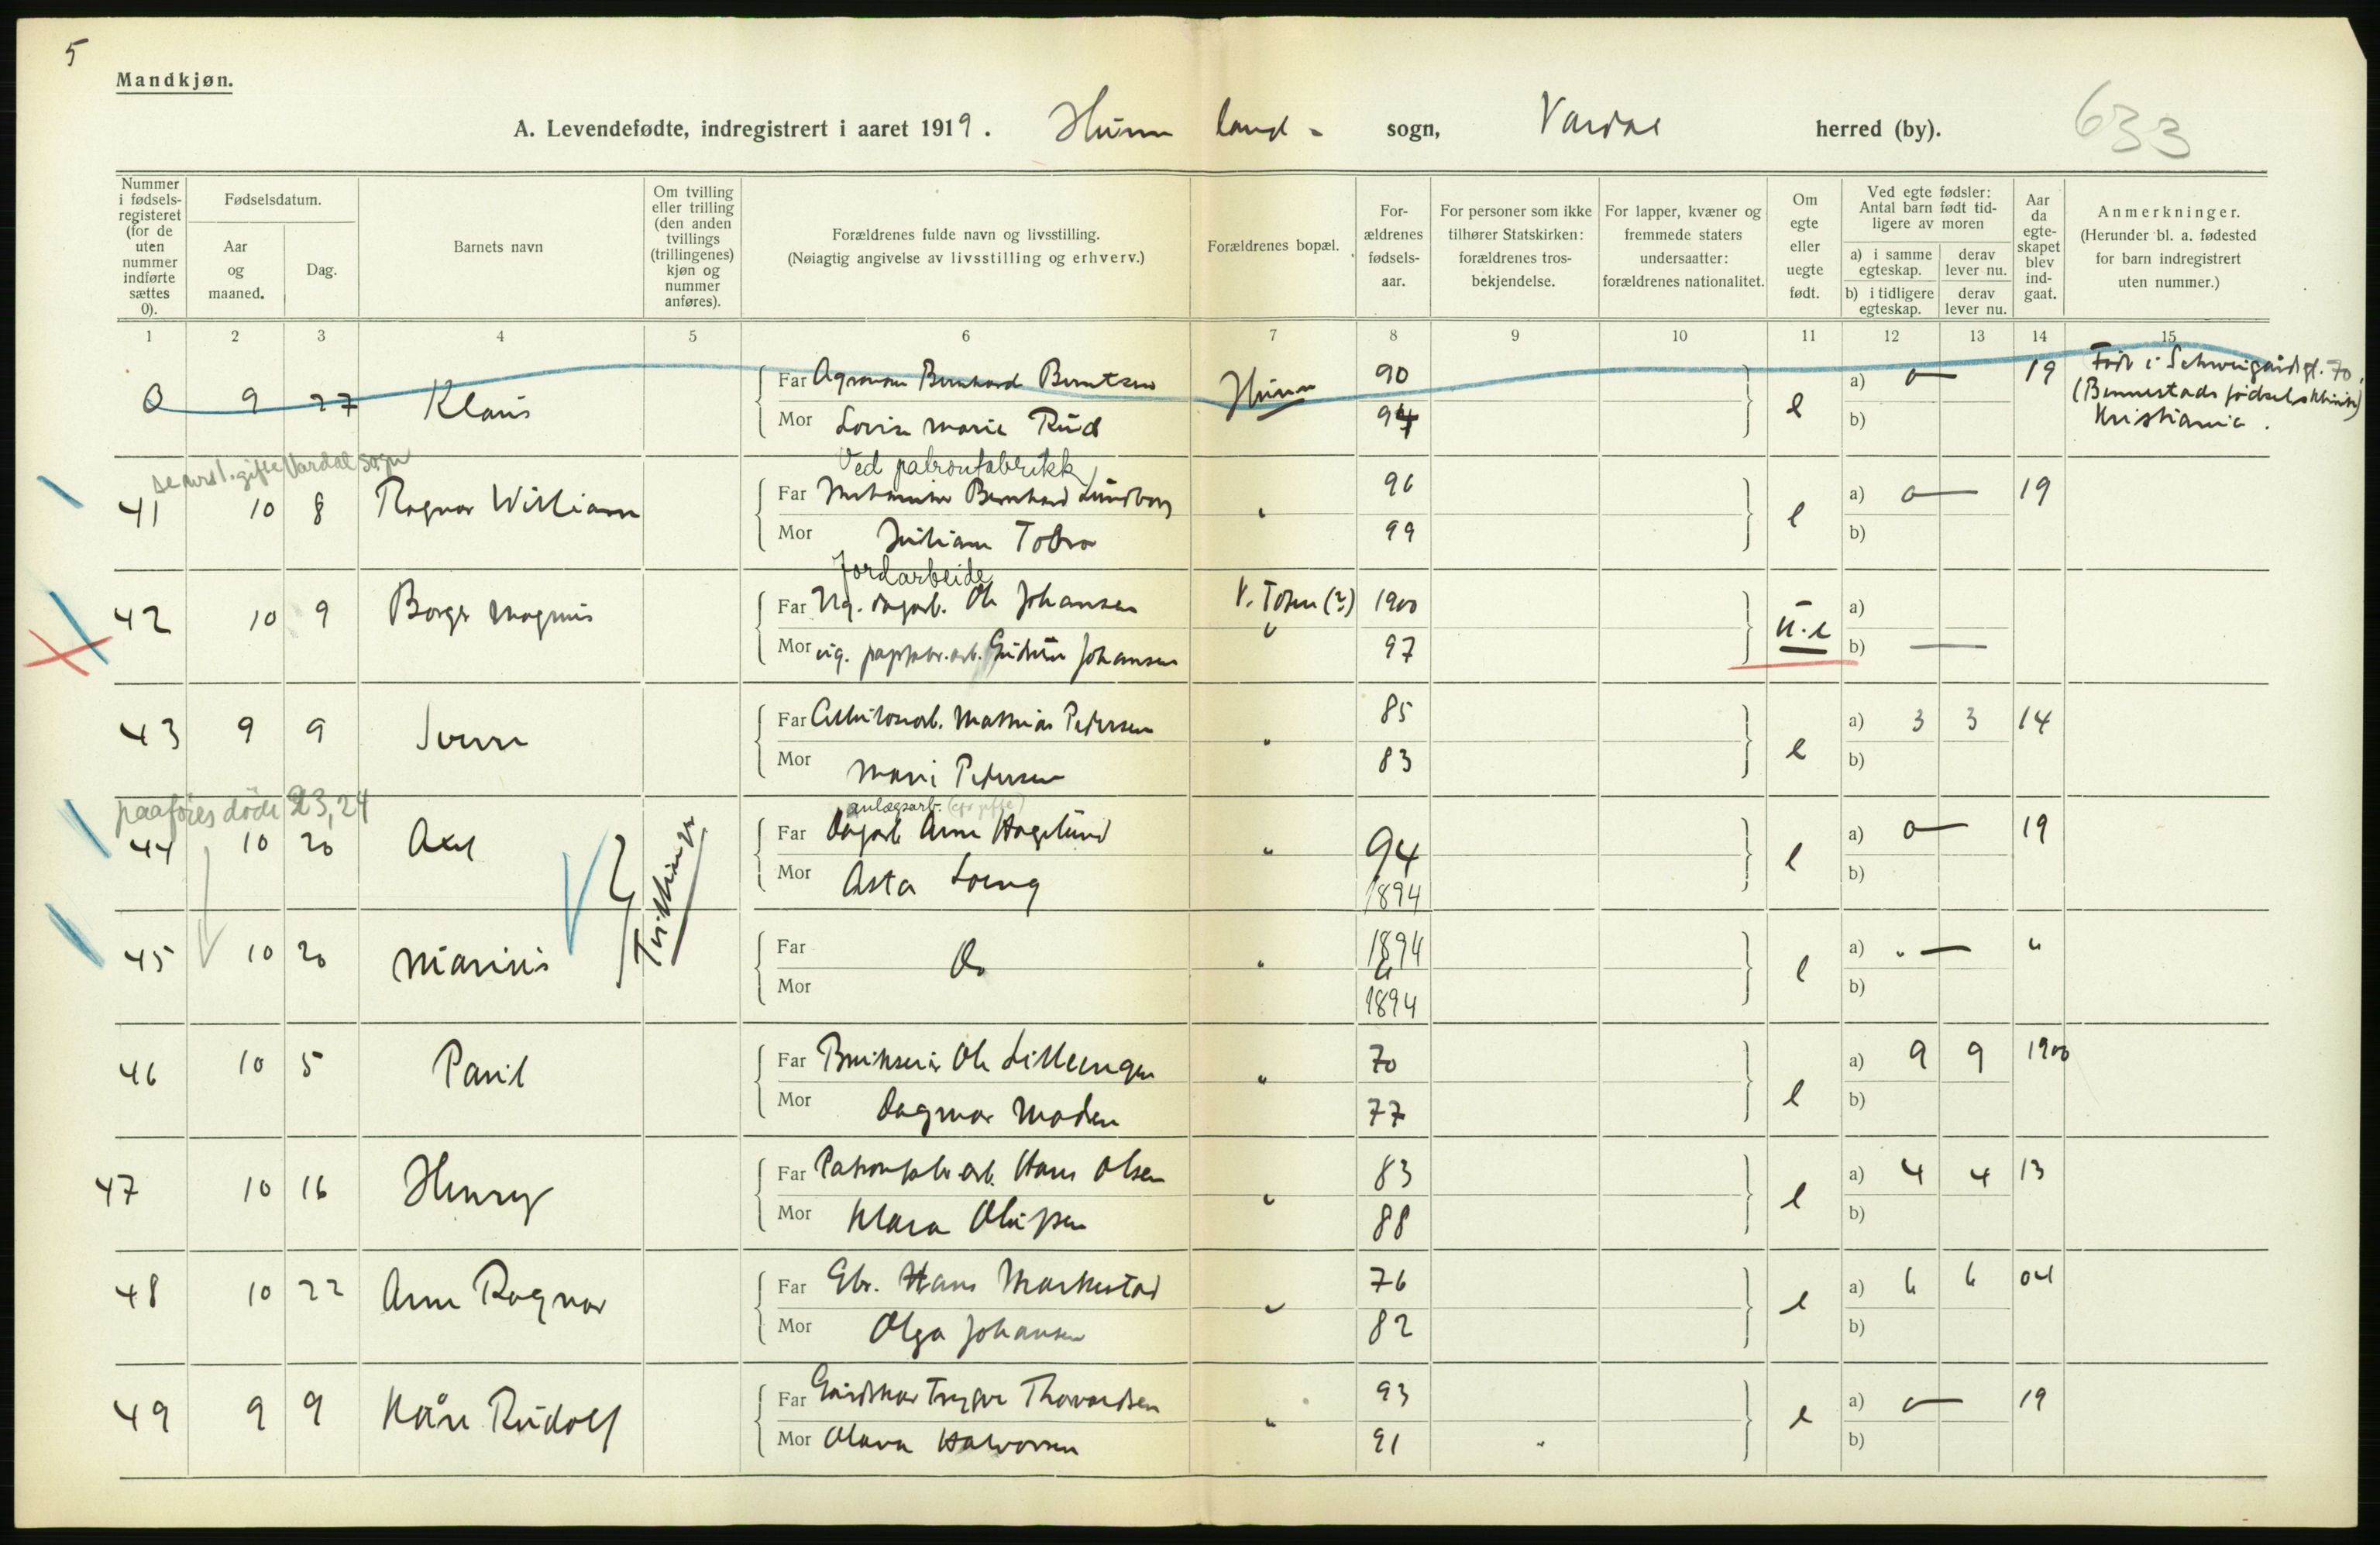 5
Mandkjøn.
A. Levendefødte, indregistrert i aaret 1919. Hunn land- sogn, Vardal herred (by). 633
Nummer i fødsels-registeret (for de uten nummer indførte sættes 0).
Fødselsdatum.
Aar og maaned.
Dag.
Barnets navn
Om tvilling eller trilling (den anden tvillings (trillingenes) kjøn og nummer anføres).
Forældrenes fulde navn og livsstilling.
(Nøiagtig angivelse av livsstilling og erhverv.)
Forældrenes bopæl.
For-ældrenes fødsels-aar.
For personer som ikke tilhører Statskirken: forældrenes tros-bekjendelse.
For lapper, kvæner og fremmede staters undersaatter: forældrenes nationalitet.
Om egte eller uegte født.
Ved egte fødsler: Antal barn født tid-ligere av moren
a) i samme egteskap.
derav lever nu.
b) i tidligere egteskap.
derav lever nu.
Aar da egte-skapet blev ind-gaat.
Anmerkninger.
(Herunder bl. a. fødested for barn indregistrert uten nummer.)
1 2 3 4 5 6 7 8 9 10 11 12 13 14 15
0 9 27 Klaus Far Agronom Bernhard Berntsen Hunn 90 e a) 0 — 19 Født i Schweigårdsgt. 70.
Mor Lovise Marie Rud 94 b) (Bennestads fødselsklinik)
Kristiania.
gifte Vardal sogn
Ved patronfabrikk
41 10 8 Ragnar William Far Bernhard Lundborg " 96 e a) 0 — 19
Mor Juliane Tobro 99 b)
Jordarbeide
42 10 9 Borge Magnus Far Ug. dagarb. Ole Johansen V. Toten (?) 1900 u.e a)
Mor ug. papfabr.arb. Gudrun Johansen " 97 b) —
43 9 9 Sverre Far Mathias Pedersen " 85 e a) 3 3 14
Mor Marie Pedersen 83 b)
paaføies døde 23, 24
anlægsarb.
44 10 20 Axel Tvillinger Far Dagarb. Arne Hagelund " 94 e a) 0 — 19
Mor Asta Loeng 1894 b)
45 10 20 Marius Far Do " 1894 e a) " — "
Mor 1894 b)
46 10 5 Paul Far Brukseier Ole Lilleengen " 70 e a) 9 9 1900
Mor Dagmar Moden 77 b)
47 10 16 Henry Far Patronfabr.arb. Hans Olsen " 83 e a) 4 4 13
Mor Klara Olufsen 88 b)
48 10 22 Arne Ragnar Far Gbr. Hans Markestad " 76 e a) 6 6 04
Mor Olga Johansen 82 b)
49 9 9 Kåre Rudolf Far Gårdskar Trygve Thorvardsen " 93 e a) 0 — 19
Mor Olava Halvorsen 91 " b)